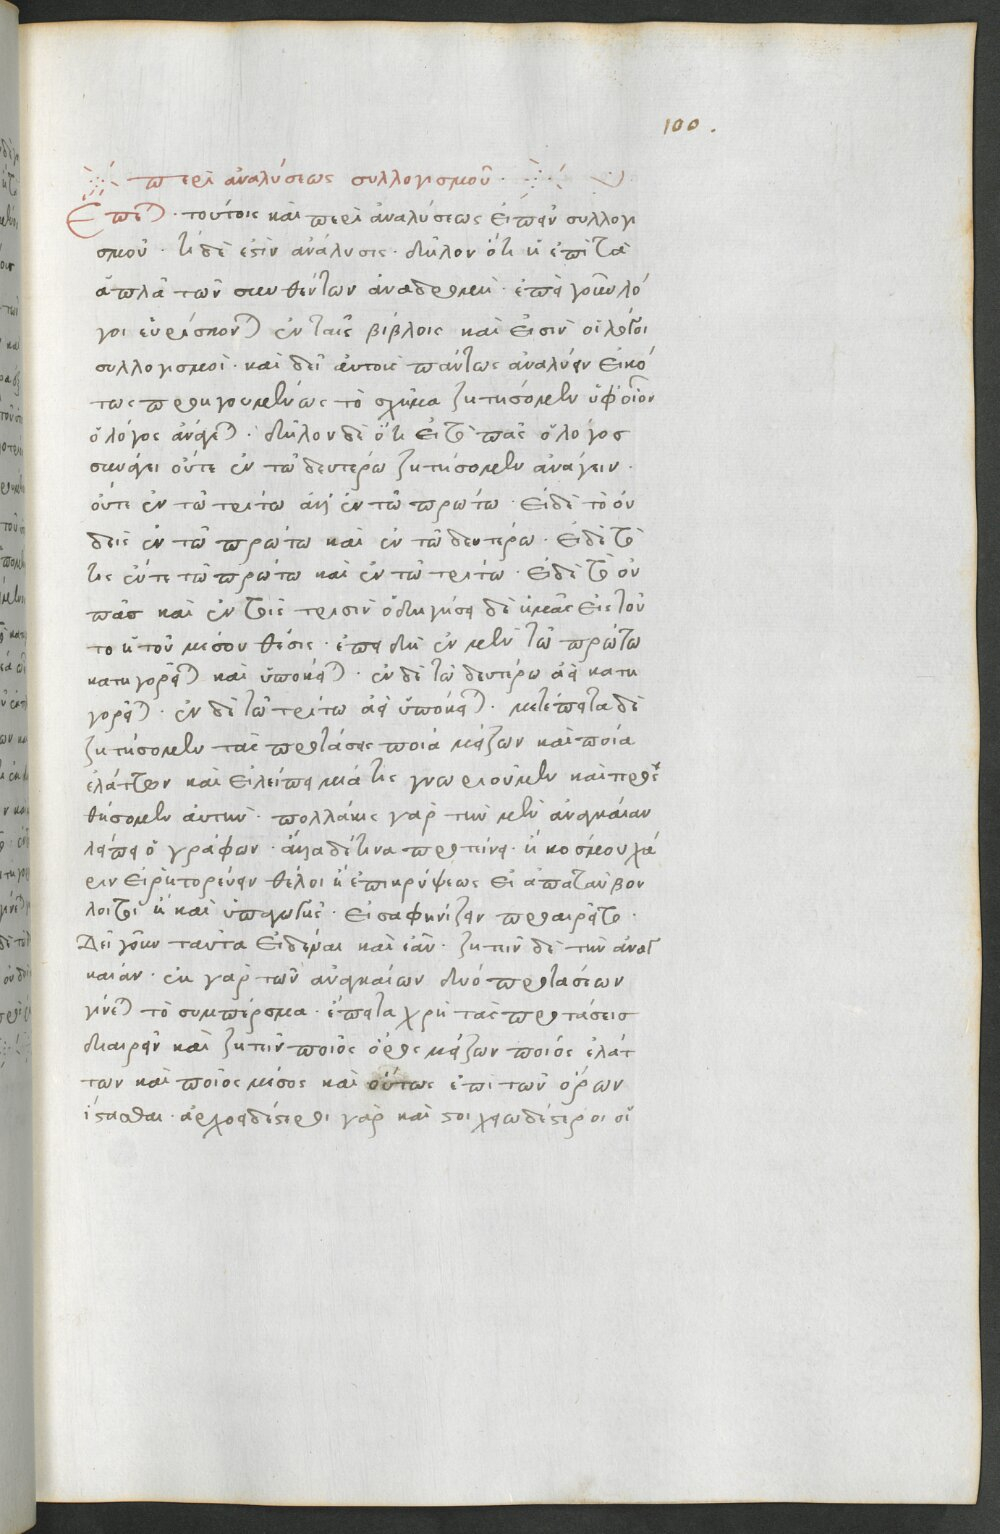 100.
περὶ ἀναλύσεως συλλογισμοῦ.
Ἕπεται τούτοις καὶ περὶ ἀναλύσεως εἰπεῖν συλλογι
σμοῦ. τί δέ ἐστιν ἀνάλυσις. δῆλον ὅτι ἡ ἐπὶ τὰ
ἁπλᾶ τῶν συντεθέντων ἀναδρομὴ. ἐπεὶ γοῦν λό
γοι εὑρίσκονται ἐν ταῖς βίβλοις καὶ εἰσὶν οἱ λόγοι
συλλογισμοὶ. καὶ δεῖ αὐτοὺς πάντως ἀναλύειν εἰκό
τως προηγουμένως τὸ σχῆμα ζητήσομεν ὑφ' οἷον
ὁ λόγος ἀνάγεται. δῆλον δὲ ὅτι εἰ τὸ πᾶς ὁ λόγος
συνάγει οὔτε ἐν τῶ δευτέρω ζητήσομεν ἀνάγειν.
οὔτε ἐν τῶ τρίτω ἀλλ' ἐν τῶ πρώτω. εἰ δὲ τὸ οὐ
δεὶς ἐν τῶ πρώτω καὶ ἐν τῶ δευτέρω. εἰ δὲ τὸ
τὶς ἔν τε τῶ πρώτω καὶ ἐν τῶ τρίτω. εἰ δὲ τὸ οὐ
πᾶς καὶ ἐν τοῖς τρισὶν ὁδηγήσει δὲ ἡμᾶς εἰς τοῦ
το ἡ τοῦ μέσου θέσις. ἐπειδὴ ἐν μὲν τῶ πρώτω
κατηγορεῖται καὶ ὑπόκειται. ἐν δὲ τῶ δευτέρω ἀεὶ κατη
γορεῖται. ἐν δὲ τῶ τρίτω ἀεὶ ὑπόκειται. μετέπειτα δὲ
ζητήσομεν τὰς προτάσεις ποία μείζων καὶ ποία
ἐλάττων καὶ εἰ λείπει μιά τις γνωριοῦμεν καὶ προς
θήσομεν αὐτὴν. πολλάκις γὰρ τὴν μὲν ἀναγκαίαν
λείπει ὁ γράφων. ἄλλα δέ τινα προτείνει. ἢ κόσμου χά
ριν εἰ ῥητορεύειν θέλοι ἢ ἐπικρύψεως εἰ ἀπατᾶν βού
λοιτο ἢ καὶ εἰ σαφηνίζειν προαιρεῖτο.
Δεῖ γοῦν ταῦτα εἰδέναι καὶ ἐᾶν. ζητεῖν δὲ τὴν ἀναγ
καίαν. ἐκ γὰρ τῶν ἀναγκαίων δύο προτάσεων
γίνεται τὸ συμπέρασμα. ἔπειτα χρὴ τὰς προτάσεις
διαιρεῖν καὶ ζητεῖν ποῖος ὅρος μείζων ποῖος ἐλάτ
των καὶ ποῖος μέσος καὶ οὕτως ἐπὶ τῶν ὅρων
ἵστασθαι. ἀρχοειδέστεροι γὰρ καὶ στοιχειωδέστεροι οἱ